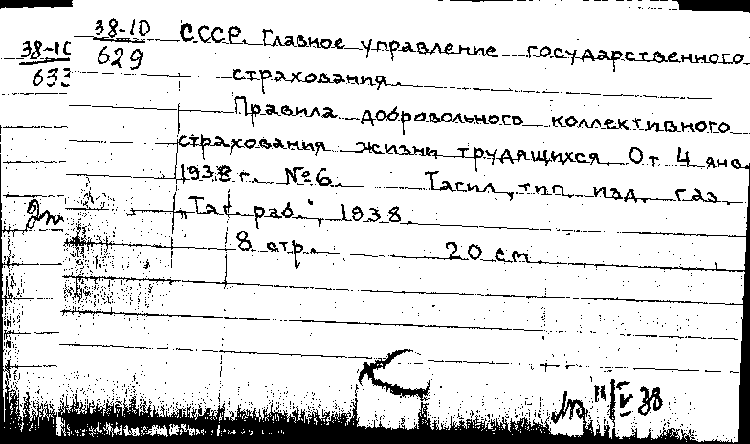 38-10
629
СССР. Главное управление государственного
страхования.
Правила добровольного коллективного
страхования жизни трудящихся. От 4 янв.
1938 г. № 6. Тагил, тип. изд. газ.
„Таг. раб.", 1938.
8 стр. 20 см
38-10
633